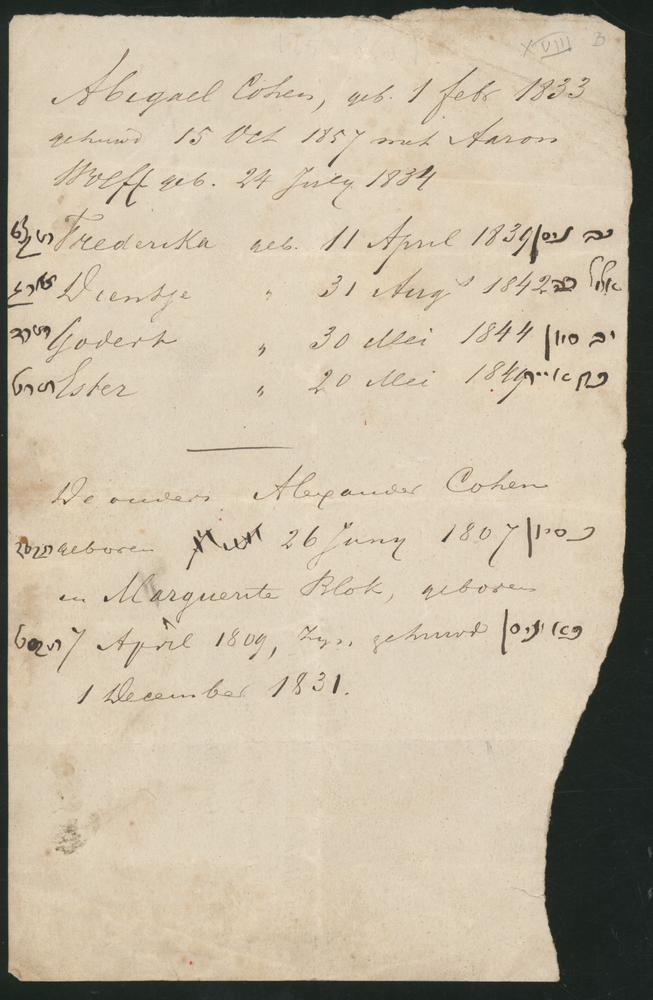 XVIII B
Abigael Cohen, geb. 1 febr 1833
gehuwd 15 Oct 1857 met Aaron
Wolff geb. 24 July 1834
Frederika geb. 11 April 1839 כב ניסן
Dientje " 31 Aug 1842 אלול כה
Godert " 30 Mei 1844 יב סיון
Ester " 20 Mei 1849 אייר
De ouders Alexander Cohen
geboren 26 Juny 1807 כ סיון
en Marguerite Blok, geboren
7 April 1809, zyn gehuwd ניסן
1 December 1831.